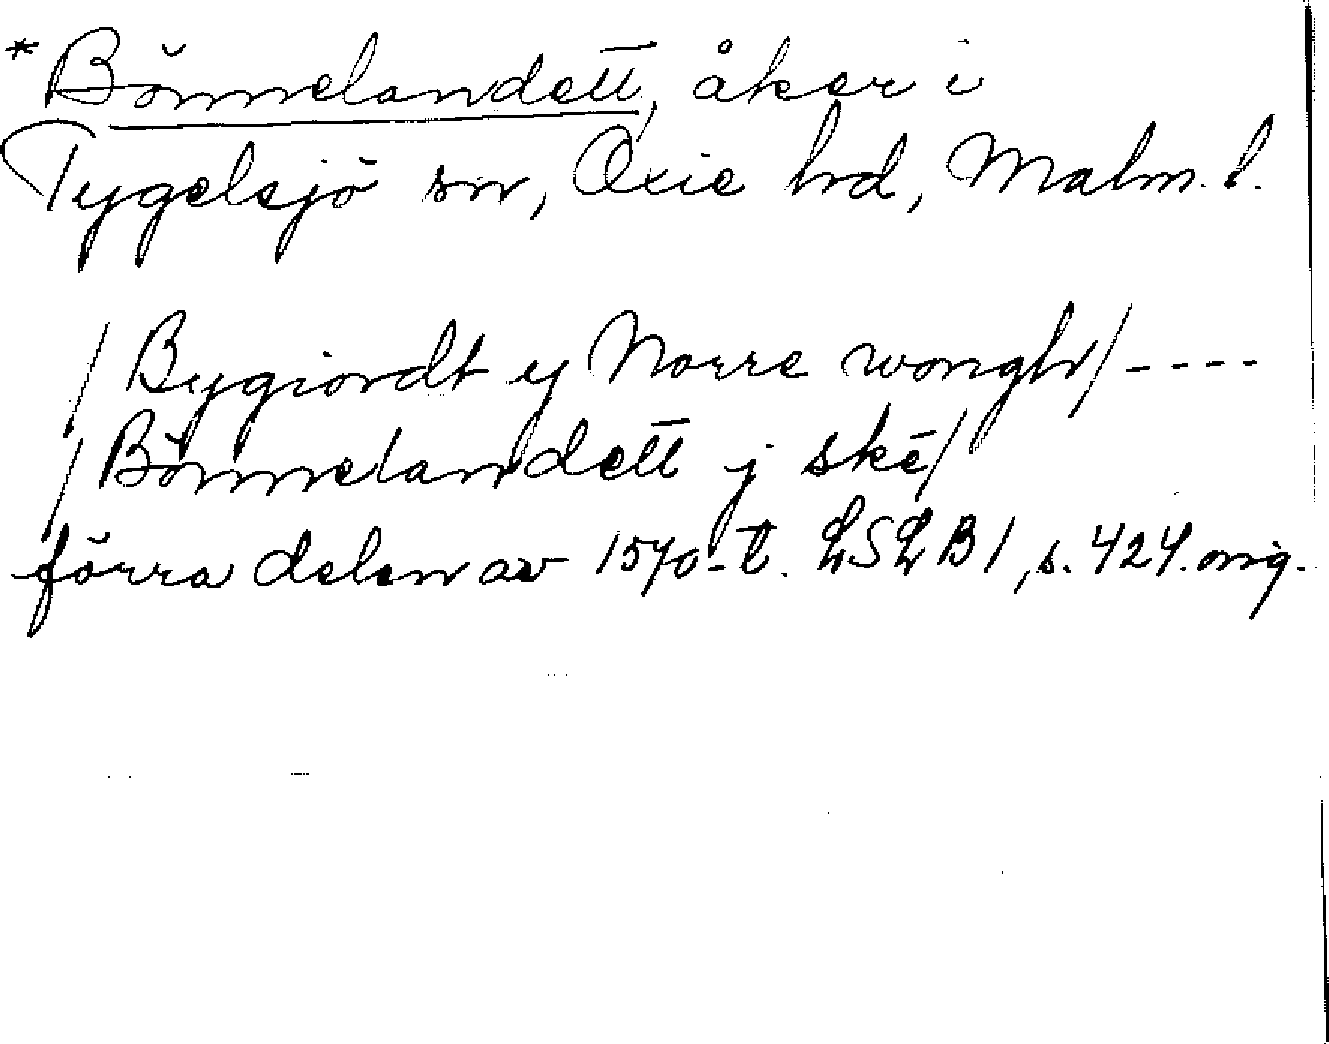 *Bönnelandett, åker i
Tygelsjö sn, Oxie hd, Malm. l.
/Bygiordt y Norre wongh/----
/Bönnelandett j ske/
förra delen av 1570-t. LSLB1, s. 424. orig.